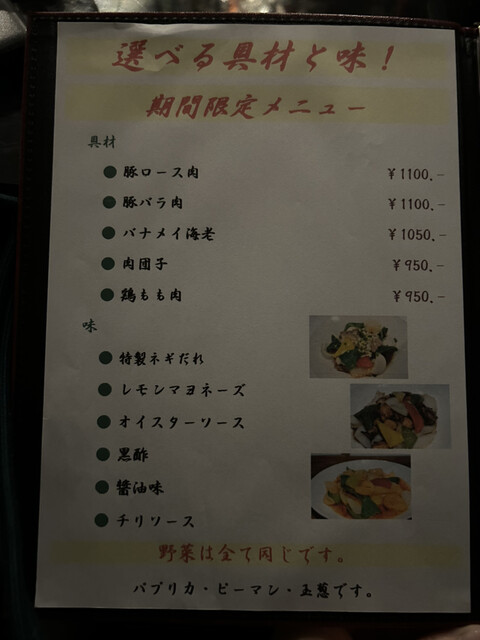 選べる具材と味！
期間限定メニュー
具材
● 豚ロース肉 ￥1100.-
● 豚バラ肉 ￥1100.-
● バナメイ海老 ￥1050.-
● 肉団子 ￥950.-
● 鶏もも肉 ￥950.-
味
● 特製ネギだれ
● レモンマヨネーズ
● オイスターソース
● 黒酢
● 醬油味
● チリソース
野菜は全て同じです。
パプリカ・ピーマン・玉葱です。